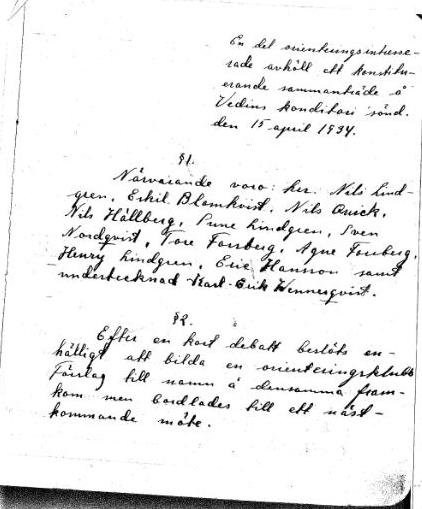 En del orienteringsintresse-
rade avhöll ett konstitu-
erande sammanträde å
Vedins konditori sönd.
den 15 april 1934.
§1.
Närvarande voro: hrr. Nils Lind-
gren, Eskil Blomkvist, Nils Quick,
Nils Hällberg, Sune Lindgren, Sven
Nordqvist, Tore Forsberg, Agne Forsberg,
Henry Lindgren, Eric Hansson samt
undertecknad Karl-Erik Wennerqvist.
§2.
Efter en kort debatt beslöts en-
hälligt att bilda en orienteringsklubb
Förslag till namn å densamma fram-
kom men bordlades till ett näst-
kommande möte.